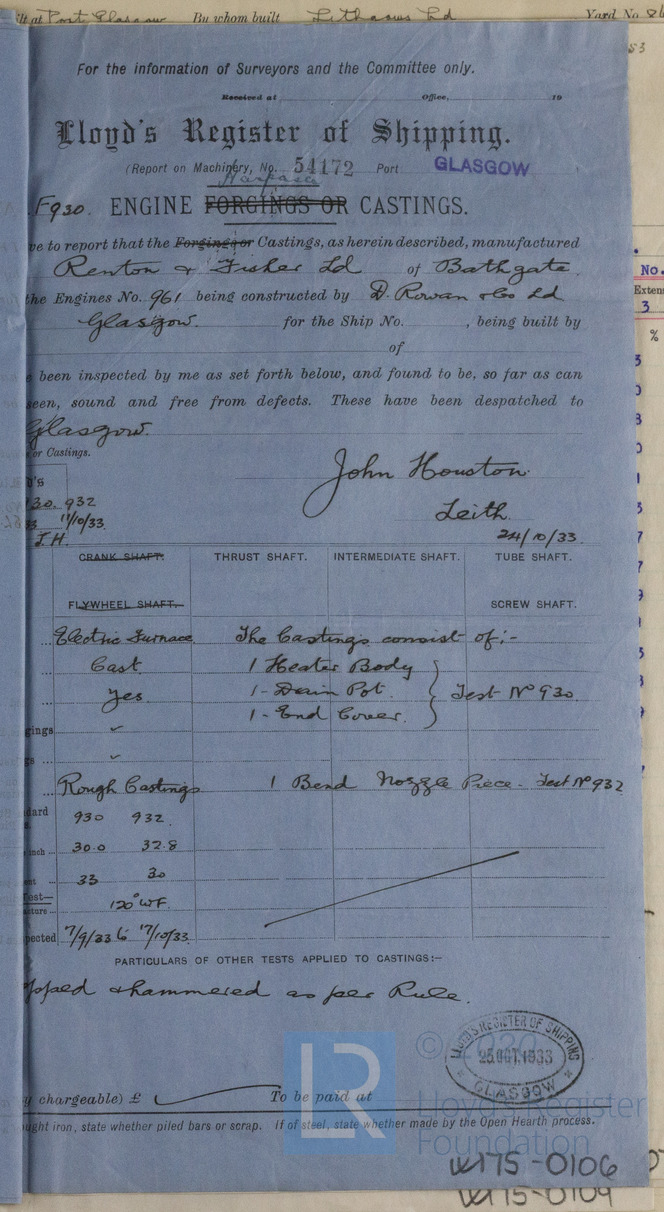 Port Glasgow By whom built Lithgows Ld Yard No.
53
For the information of Surveyors and the Committee only.
Received at Office, 19
Lloyd's Register of Shipping.
(Report on Machinery, No. 54172 Port GLASGOW
Harpasa
F930. ENGINE FORGINGS OR CASTINGS.
ve to report that the Forgings or Castings, as herein described, manufactured
Renton & Fisher Ld of Bathgate.
the Engines No. 961 being constructed by D. Rowan & Co Ld
Glasgow. for the Ship No. , being built by
of
been inspected by me as set forth below, and found to be, so far as can
seen, sound and free from defects. These have been despatched to
Glasgow.
or Castings.
d's
930. 932
11/10/33.
J.H.
John Houston.
Leith.
24/10/33.
CRANK SHAFT. THRUST SHAFT. INTERMEDIATE SHAFT. TUBE SHAFT.
FLYWHEEL SHAFT. SCREW SHAFT.
Electric Furnace. The Castings consist of:-
Cast. 1 Heater Body
Yes 1 - Drain Pot. Test No 930.
1 - End Cover.
gings
gs
Rough Castings 1 Bend Nozzle Piece - Test No 932
dard 930 932.
inch 30.0 32.8
nt 33 30
Test—
ature 120° WF.
pected 7/9/33 to 17/10/33.
PARTICULARS OF OTHER TESTS APPLIED TO CASTINGS:—
& hammered as per Rule.
LLOYD'S REGISTER OF SHIPPING
25 OCT. 1933
GLASGOW
y chargeable) £ To be paid at
ught iron, state whether piled bars or scrap. If of steel, state whether made by the Open Hearth process.
LR
© 2020
Lloyd's Register
Foundation
W175-0106
W175-0104
No.
Exten
3
%